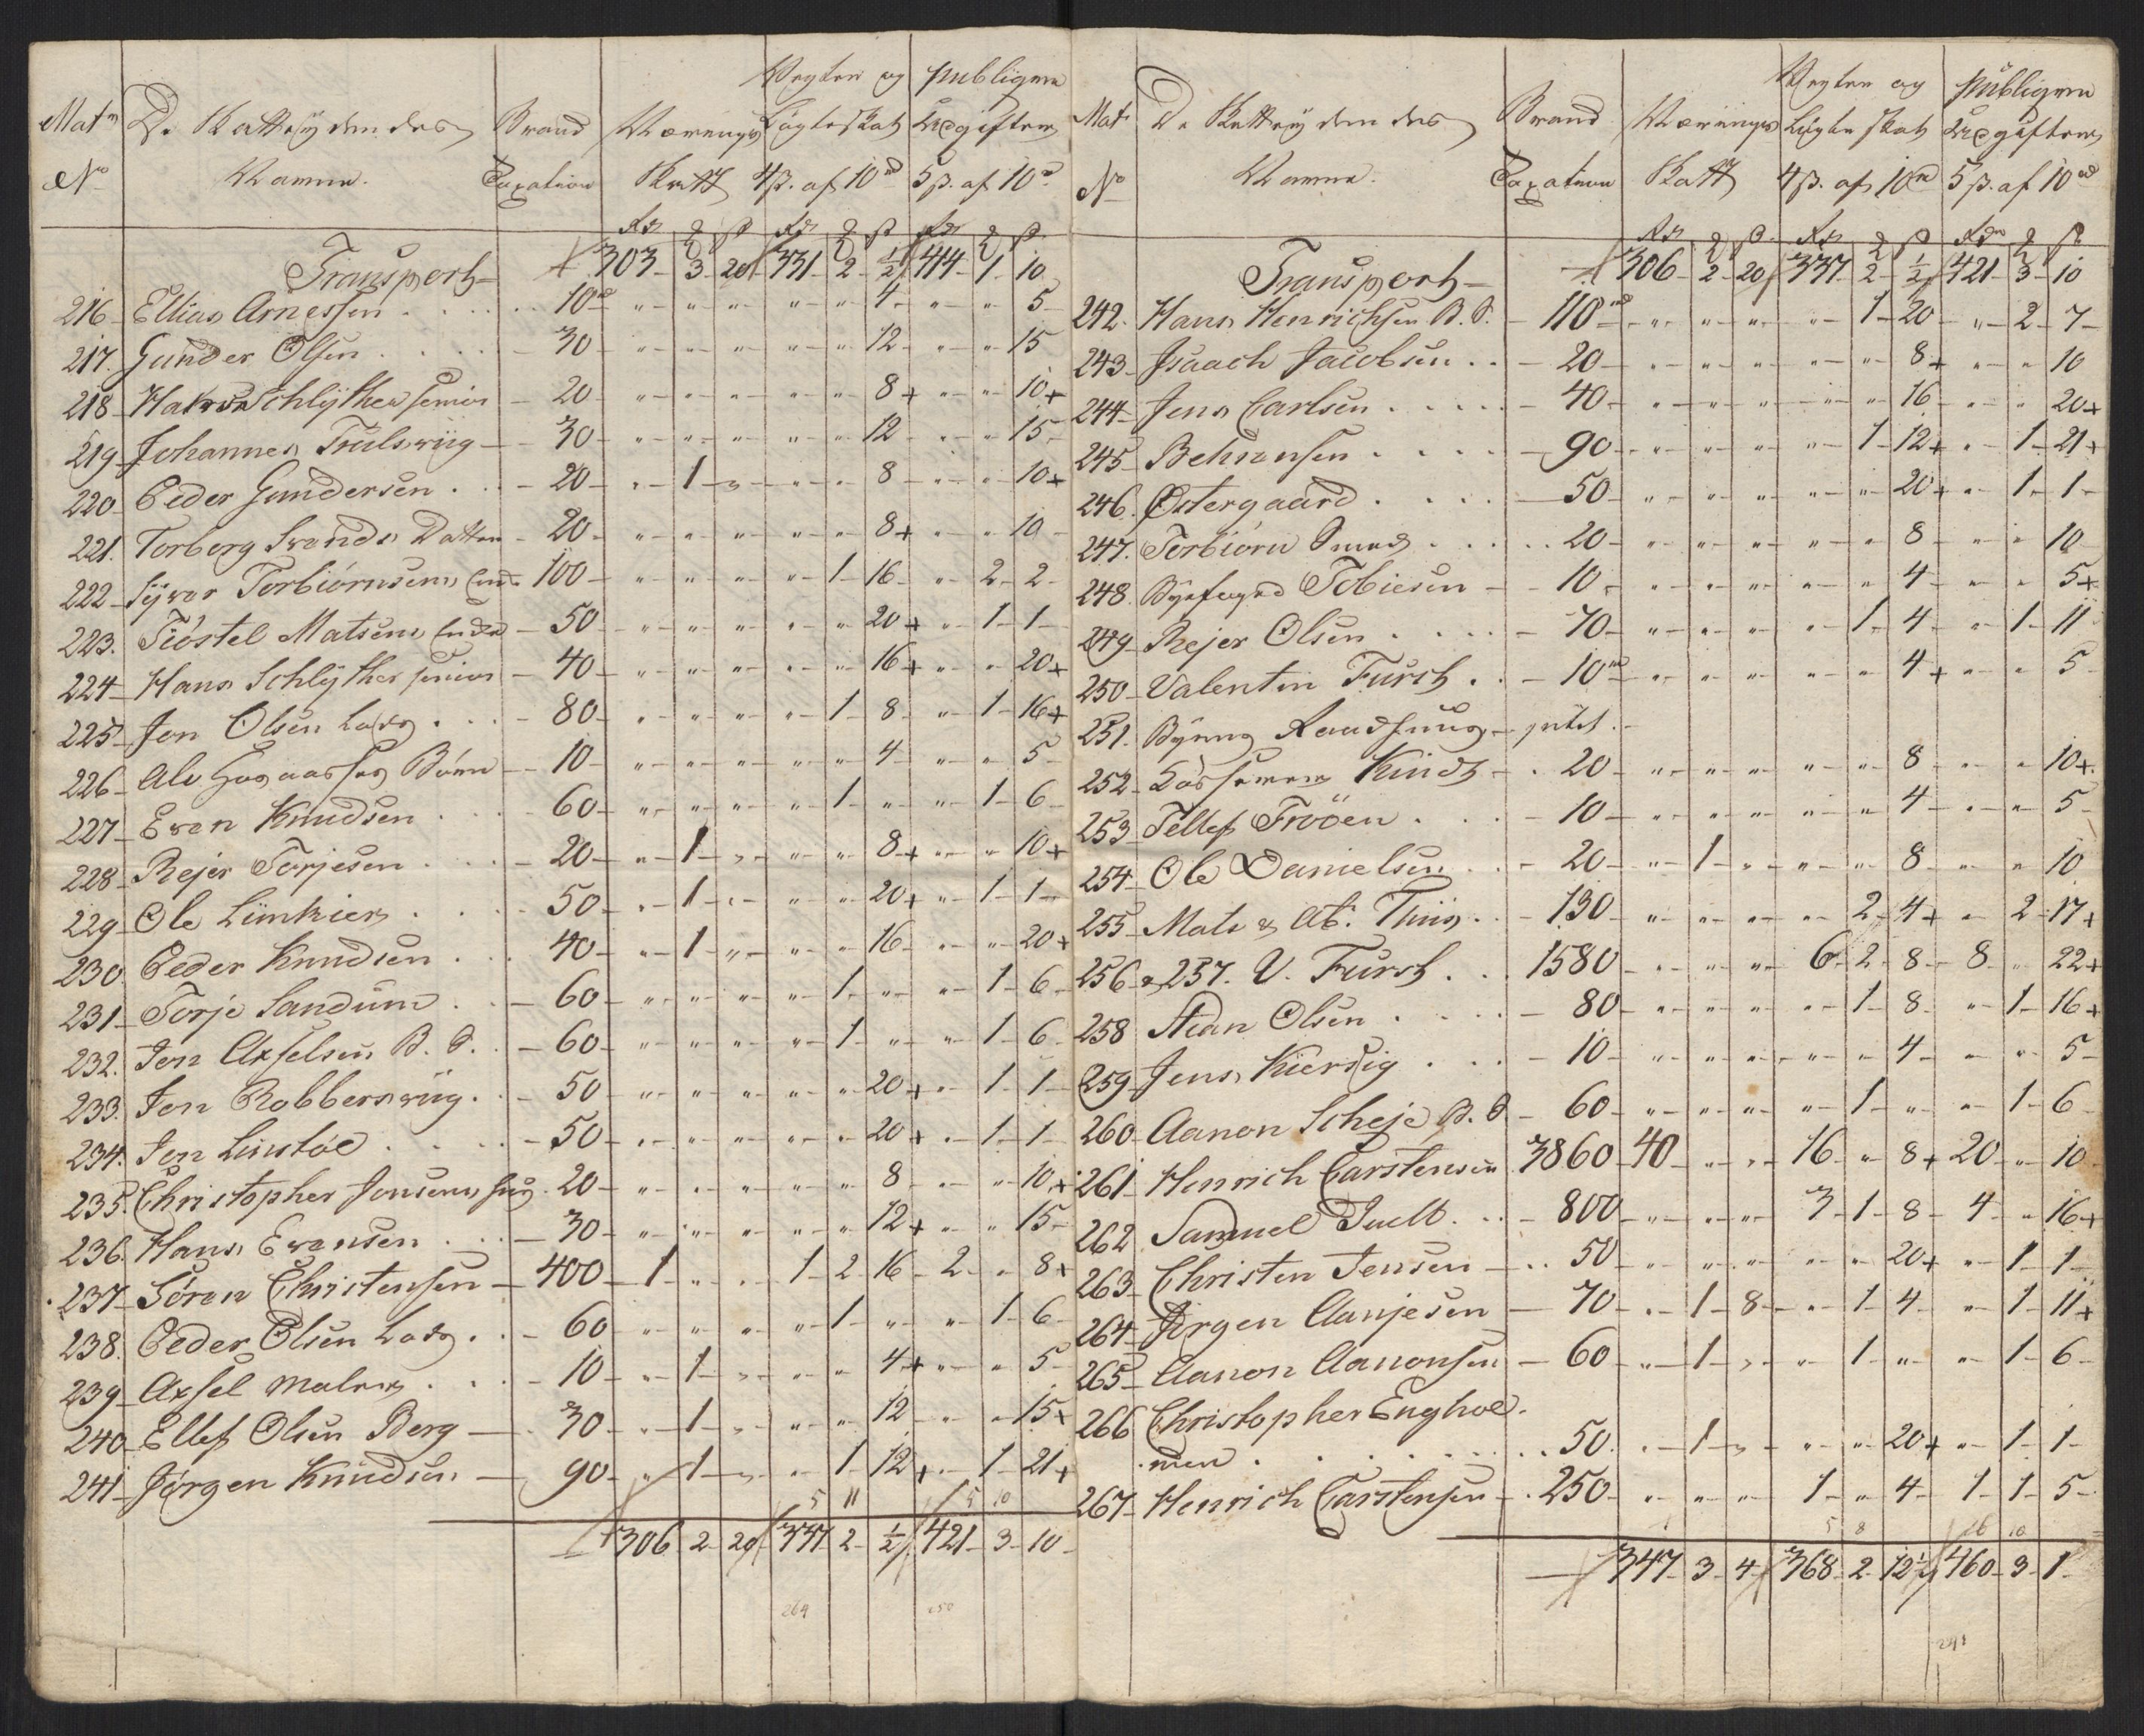 Mat. No | De Skatteÿdendes Navne. | Brand Taxation | Nærings Skatt | Vegter og Løgteskat 4 ß. af 10 rd | Publiqve Udgifter 5 ß. af 10 rd
Transport — 303 - 3 - 20 | 331 - 2 - ½ | 414 - 1 - 10
216 Ellias Arnessen . . . 10 rd | " " " | " " 4 | " " 5
217. Gunder Olsen . . . 30 | " " " | " " 12 | " " 15
218 Hakon Schlÿther senior 20 | " " " | " " 8+ | " " 10+
219 Johannes Trulsviig 30 | " " " | " " 12 | " " 15
220 Peder Gundersen . . 20 | " 1 " | " " 8 | " " 10+
221. Torborg Svends Datter 20 | " " " | " " 8+ | " " 10
222 Sÿver Torbiørnsens Enke 100 | " " " | " 1 16 | " 2 2
223. Tiøstel Matsens Enke 50 | " " " | " " 20+ | " 1 1
224 Hans Schlÿther senior 40 | " " " | " " 16+ | " " 20+
225 Jon Olsen Lods . . 80 | " " " | " 1 8 | " 1 16+
226 Alv Børn 10 | " " " | " " 4 | " " 5
227 Even Knudsen . . . 60 | " " " | " 1 " | " 1 6
228 Rejer Torjesen . . . 20 | " 1 " | " " 8+ | " " 10+
229 Ole Limkier . . . 50 | " 1 " | " " 20+ | " 1 1
230. Peder Knudsen . . . 40 | " 1 " | " " 16 | " " 20+
231 Torje Sandum . . 60 | " " " | " 1 " | " 1 6
232. Jon Axselsen B. S. 60 | " " " | " 1 " | " 1 6
233. Jon Robbersviig . 50 | " " " | " " 20+ | " 1 1
234. Jon Linstøl . . . 50 | " " " | " " 20+ | " 1 1
235. Christopher Jonsens 20 | " " " | " " 8 | " " 10+
236. Hans Evensen . . 30 | " " " | " " 12+ | " " 15
237 Søren Christensen 400 | 1 " " | 1 2 16 | 2 " 8+
238. Peder Olsen Lods . 60 | " " " | " 1 " | " 1 6
239 Axsel Maler . . . 10 | " 1 " | " " 4+ | " " 5
240 Ellef Olsen Berg 30 | " 1 " | " " 12 | " " 15+
241 Jørgen Knudsen 90 | " 1 " | " 1 12+ | " 1 21+
5 11 | 5 10
306 2 20 | 337 2 ½ | 421 3 10
264 250
Mat. No | De Skatteÿdendes Navne. | Brand Taxation | Nærings Skatt | Vegter og Løgte skat 4 ß. af 10 rd | Publiqve Udgifter 5 ß. af 10 rd
Transport — 306 - 2 - 20 | 337 - 2 - ½ | 421 - 3 - 10
242. Hans Henrichsen B. S. 110 rd | " " " | " 1 20 | " 2 7
243 Isaach Jacobsen . . 20 | " " " | " " 8+ | " " 10
244 Jens Carlsen . . . 40 | " " " | " " 16 | " " 20+
245 Behrensen . . . 90 | " " " | " 1 12+ | " 1 21+
246. Østergaard . . . 50 | " " " | " " 20+ | " 1 1
247. Torbiørn Smed . . . 20 | " " " | " " 8 | " " 10
248. Bÿefoged Tobiesen 10 | " " " | " " 4 | " " 5+
249 Rejer Olsen . . . 70 | " " " | " 1 4 | " 1 11
250 Valentin Fürst . . 10 rd | " " " | " " 4+ | " " 5
251. Bÿens Raadhuus intet.
252 Kindt 20 | " " " | " " 8 | " " 10+
253 Tellef Frøöen . . . 10 | " " " | " " 4 | " " 5
254 Ole Danielsen . . 20 | " 1 " | " " 8 | " " 10
255 Mats & Ab. Thiis . . 130 | " " " | " 2 4+ | " 2 17+
256 & 257. V. Fürst . . 1580 | " " " | 6 2 8 | 8 " 22+
258 Stian Olsen . . . 80 | " " " | " 1 8 | " 1 16+
259 Jens Kiersig . . . 10 | " " " | " " 4 | " " 5
260 Aanon Scheje B. S 60 | " " " | " 1 " | " 1 6
261 Henrich Carstensen 3860 | 40 " " | 16 " 8+ | 20 " 10
262 Samuel Juell . . 800 | " " " | 3 1 8 | 4 " 16+
263 Christen Jensen . . 50 | " " " | " " 20+ | " 1 1
264 Jørgen Aanjesen 70 | " 1 8 | " 1 4 | " 1 11+
265 Aanon Aanonsen 60 | " 1 " | " 1 " | " 1 6
266 Christopher Enghol-
men . . . . . 50 | " 1 " | " " 20+ | " 1 1
267 Henrich Carstensen 250 | " " " | 1 " 4 | 1 1 5
5 8 | 16 10
347 3 4 | 368 2 12½ | 460 3 1
291